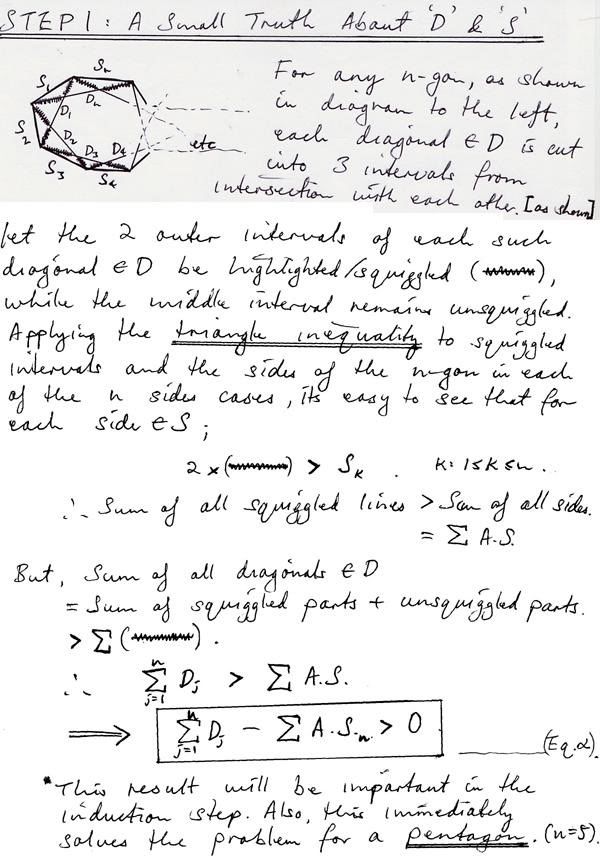 STEP 1: A Small Truth About 'D' & 'S'
S₁ Sₙ
D₁ Dₙ
S₂ D₂ D₃ D₄ etc
S₃ S₄
For any n-gon, as shown
in diagram to the left,
each diagonal ∈ D is cut
into 3 intervals from
intersection with each other. [as shown]
Let the 2 outer intervals of each such
diagonal ∈ D be highlighted/squiggled ( ),
while the middle interval remains unsquiggled.
Applying the triangle inequality to squiggled
intervals and the sides of the n-gon in each
of the n sides cases, its easy to see that for
each side ∈ S ;
2 x ( ) > Sₖ . K: 1≤K≤n.
∴ Sum of all squiggled lines > Sum of all sides.
= Σ A.S.
But, Sum of all diagonals ∈ D
= Sum of squiggled parts + unsquiggled parts.
> Σ ( ) .
∴ Σⁿⱼ₌₁ Dⱼ > Σ A.S.
⟹ Σⁿⱼ₌₁ Dⱼ - Σ A.S.ₙ > 0 (Eq.α).
*This result will be important in the
induction step. Also, this immediately
solves the problem for a pentagon. (n=5).